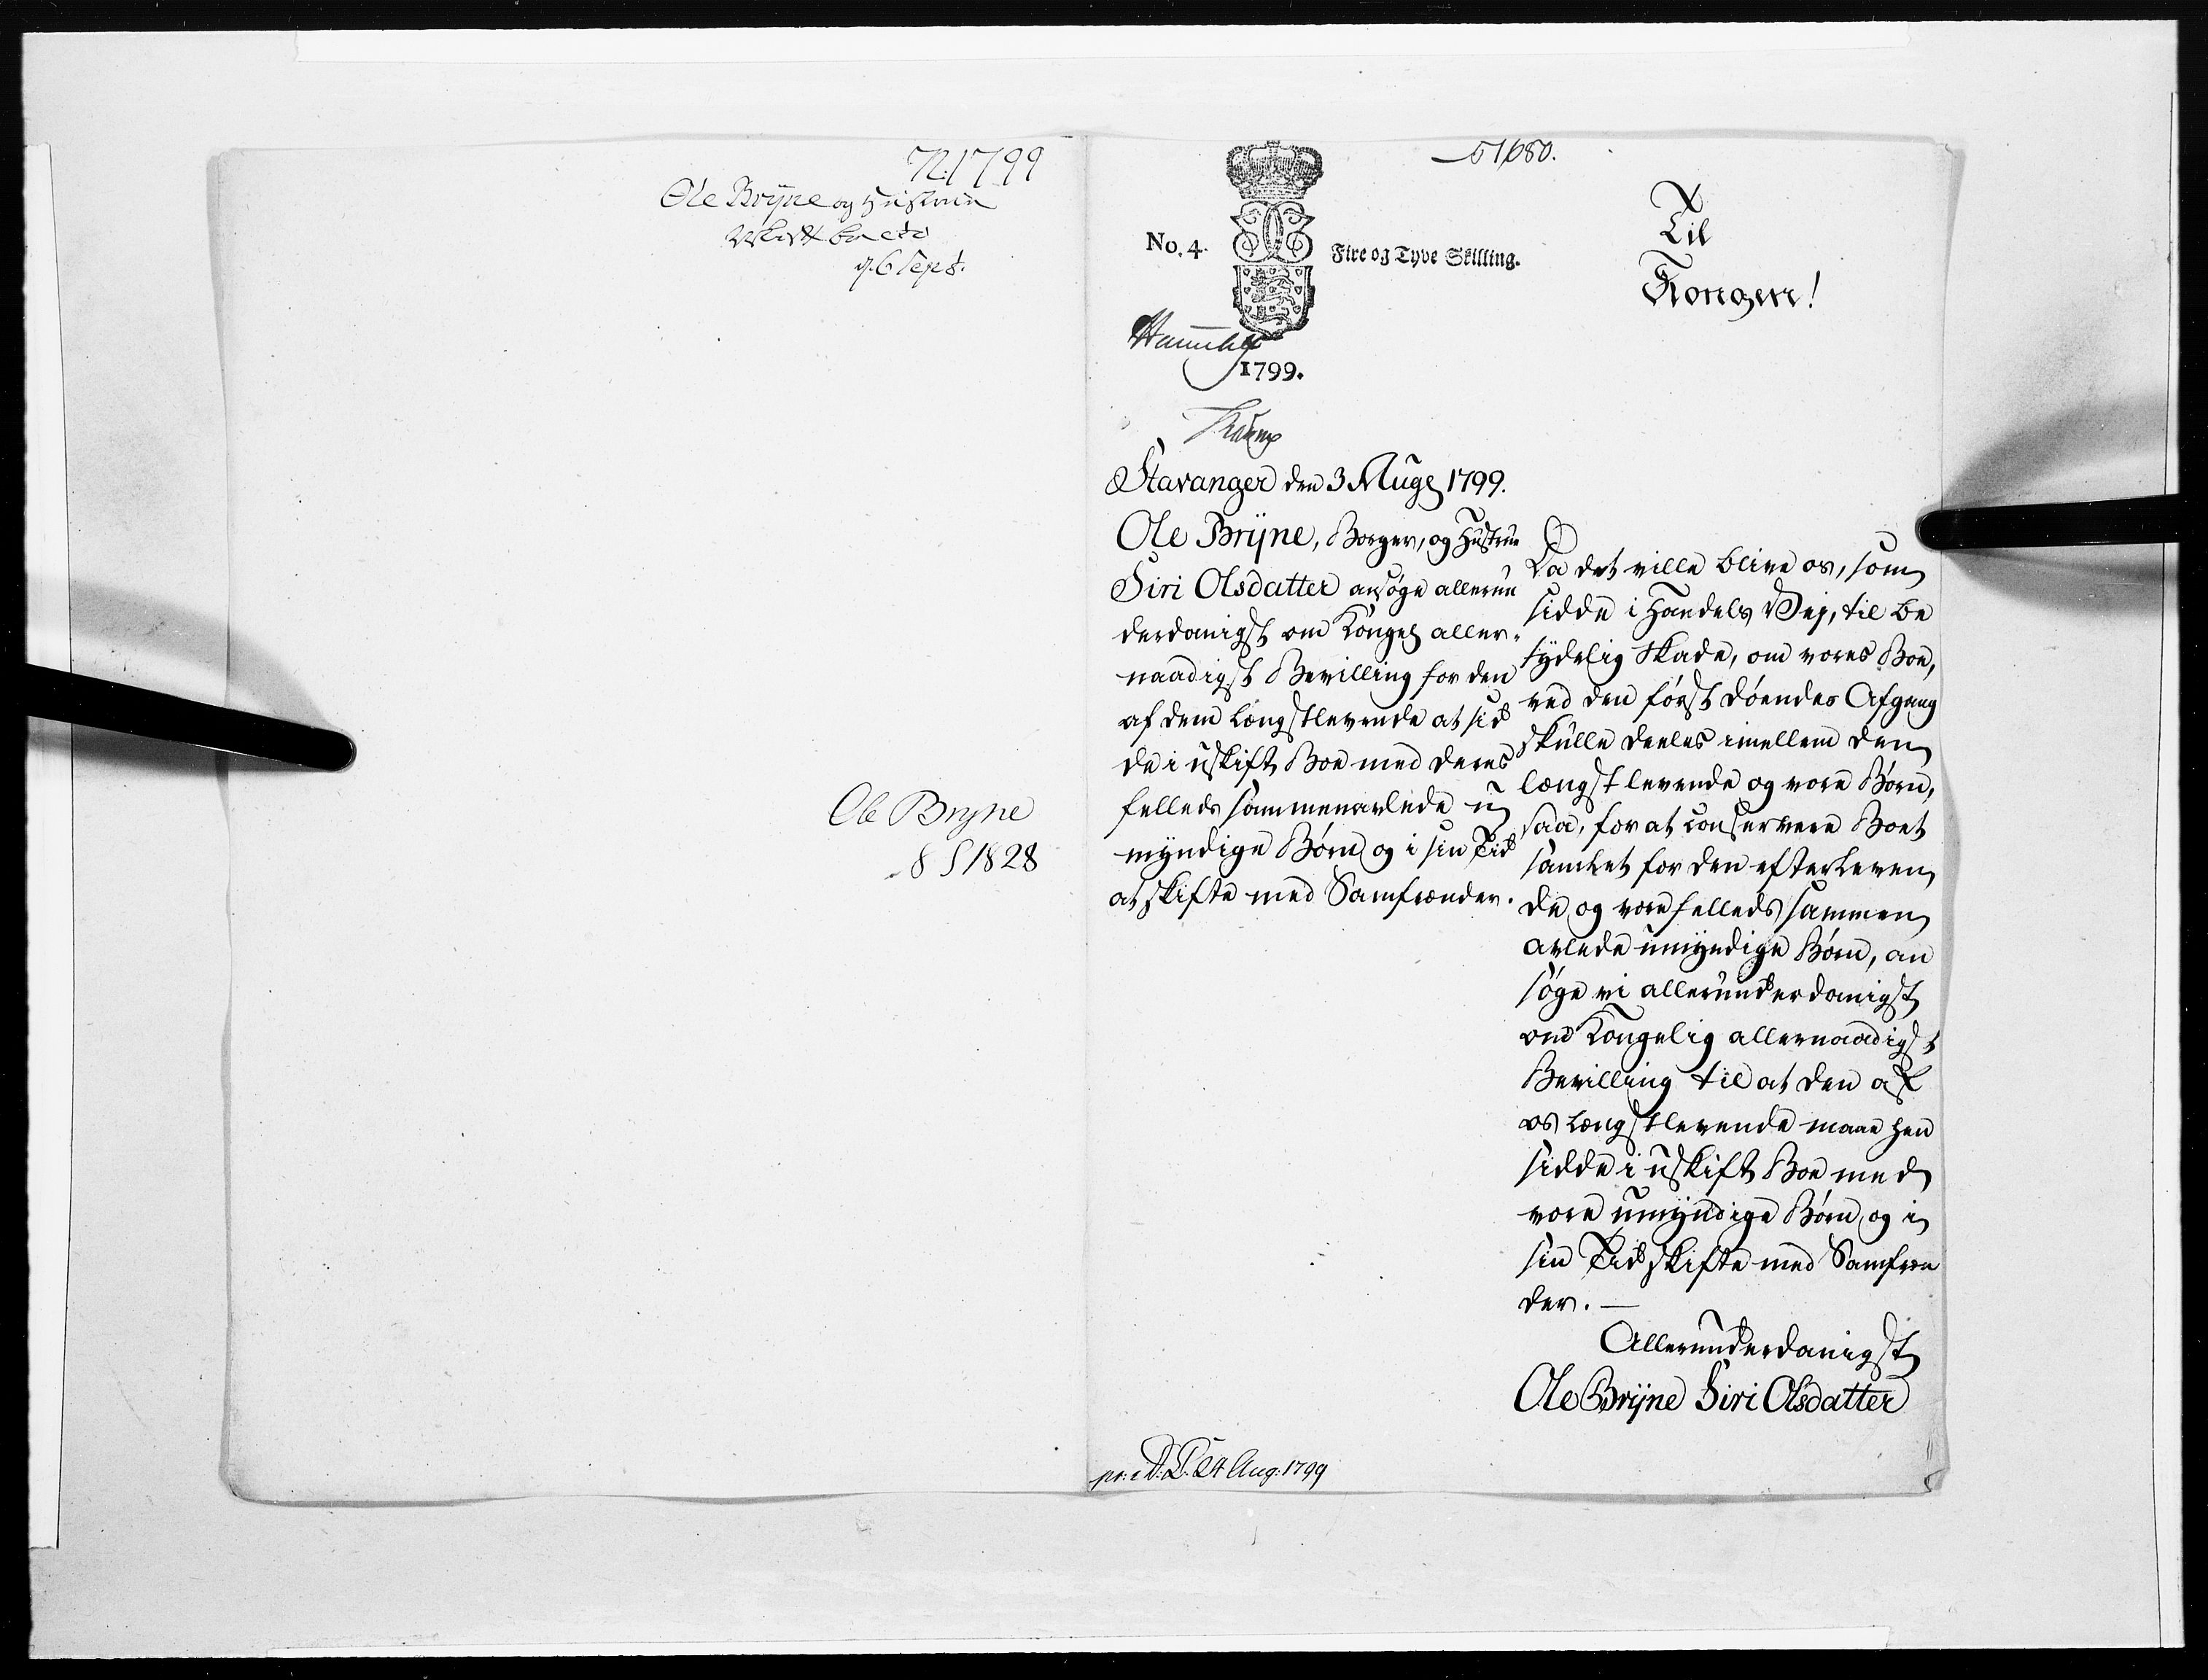 1799
Ole Brÿne og Hustrue
uskift Boe etc
d. 6 Sept.
Ole Bryne
8 S 1828
51680.
No. 4.
Fire og Tyve Skilling.
1799.
Til
Kongen!
Stavanger den 3 Aug 1799.
Ole Brÿne, Borger, og Hustrue
Siri Olsdatter ansøge allerun
derdanigst om Kongel aller-
naadigst Bevilling for den
af dem længstlevende at sid
de i uskift Boe med deres
felleds sammenavlede u
myndige Børn og i sin Tid
at skifte med Samfrænder.
Da det ville blive os, som
sidde i Handels Vej, til be
tydelig Skade, om vores Boe,
ved den først døendes Afgang
skulle deeles imellem den
længst levende og vore Børn,
saa, for at conservere Boet
samlet for den efterleven
de og vore felleds sammen
avlede umyndige Børn, an
søge vi allerunderdanigst
om Kongelig allernaadigst
Bevilling til at den af
os længstlevende maae hen
sidde i uskift Boe med
vore umyndige Børn og i
sin Tid skifte med Samfræn
der. —
Allerunderdanigst
Ole Brÿne Siri Olsdatter
pr: 24 Aug: 1799